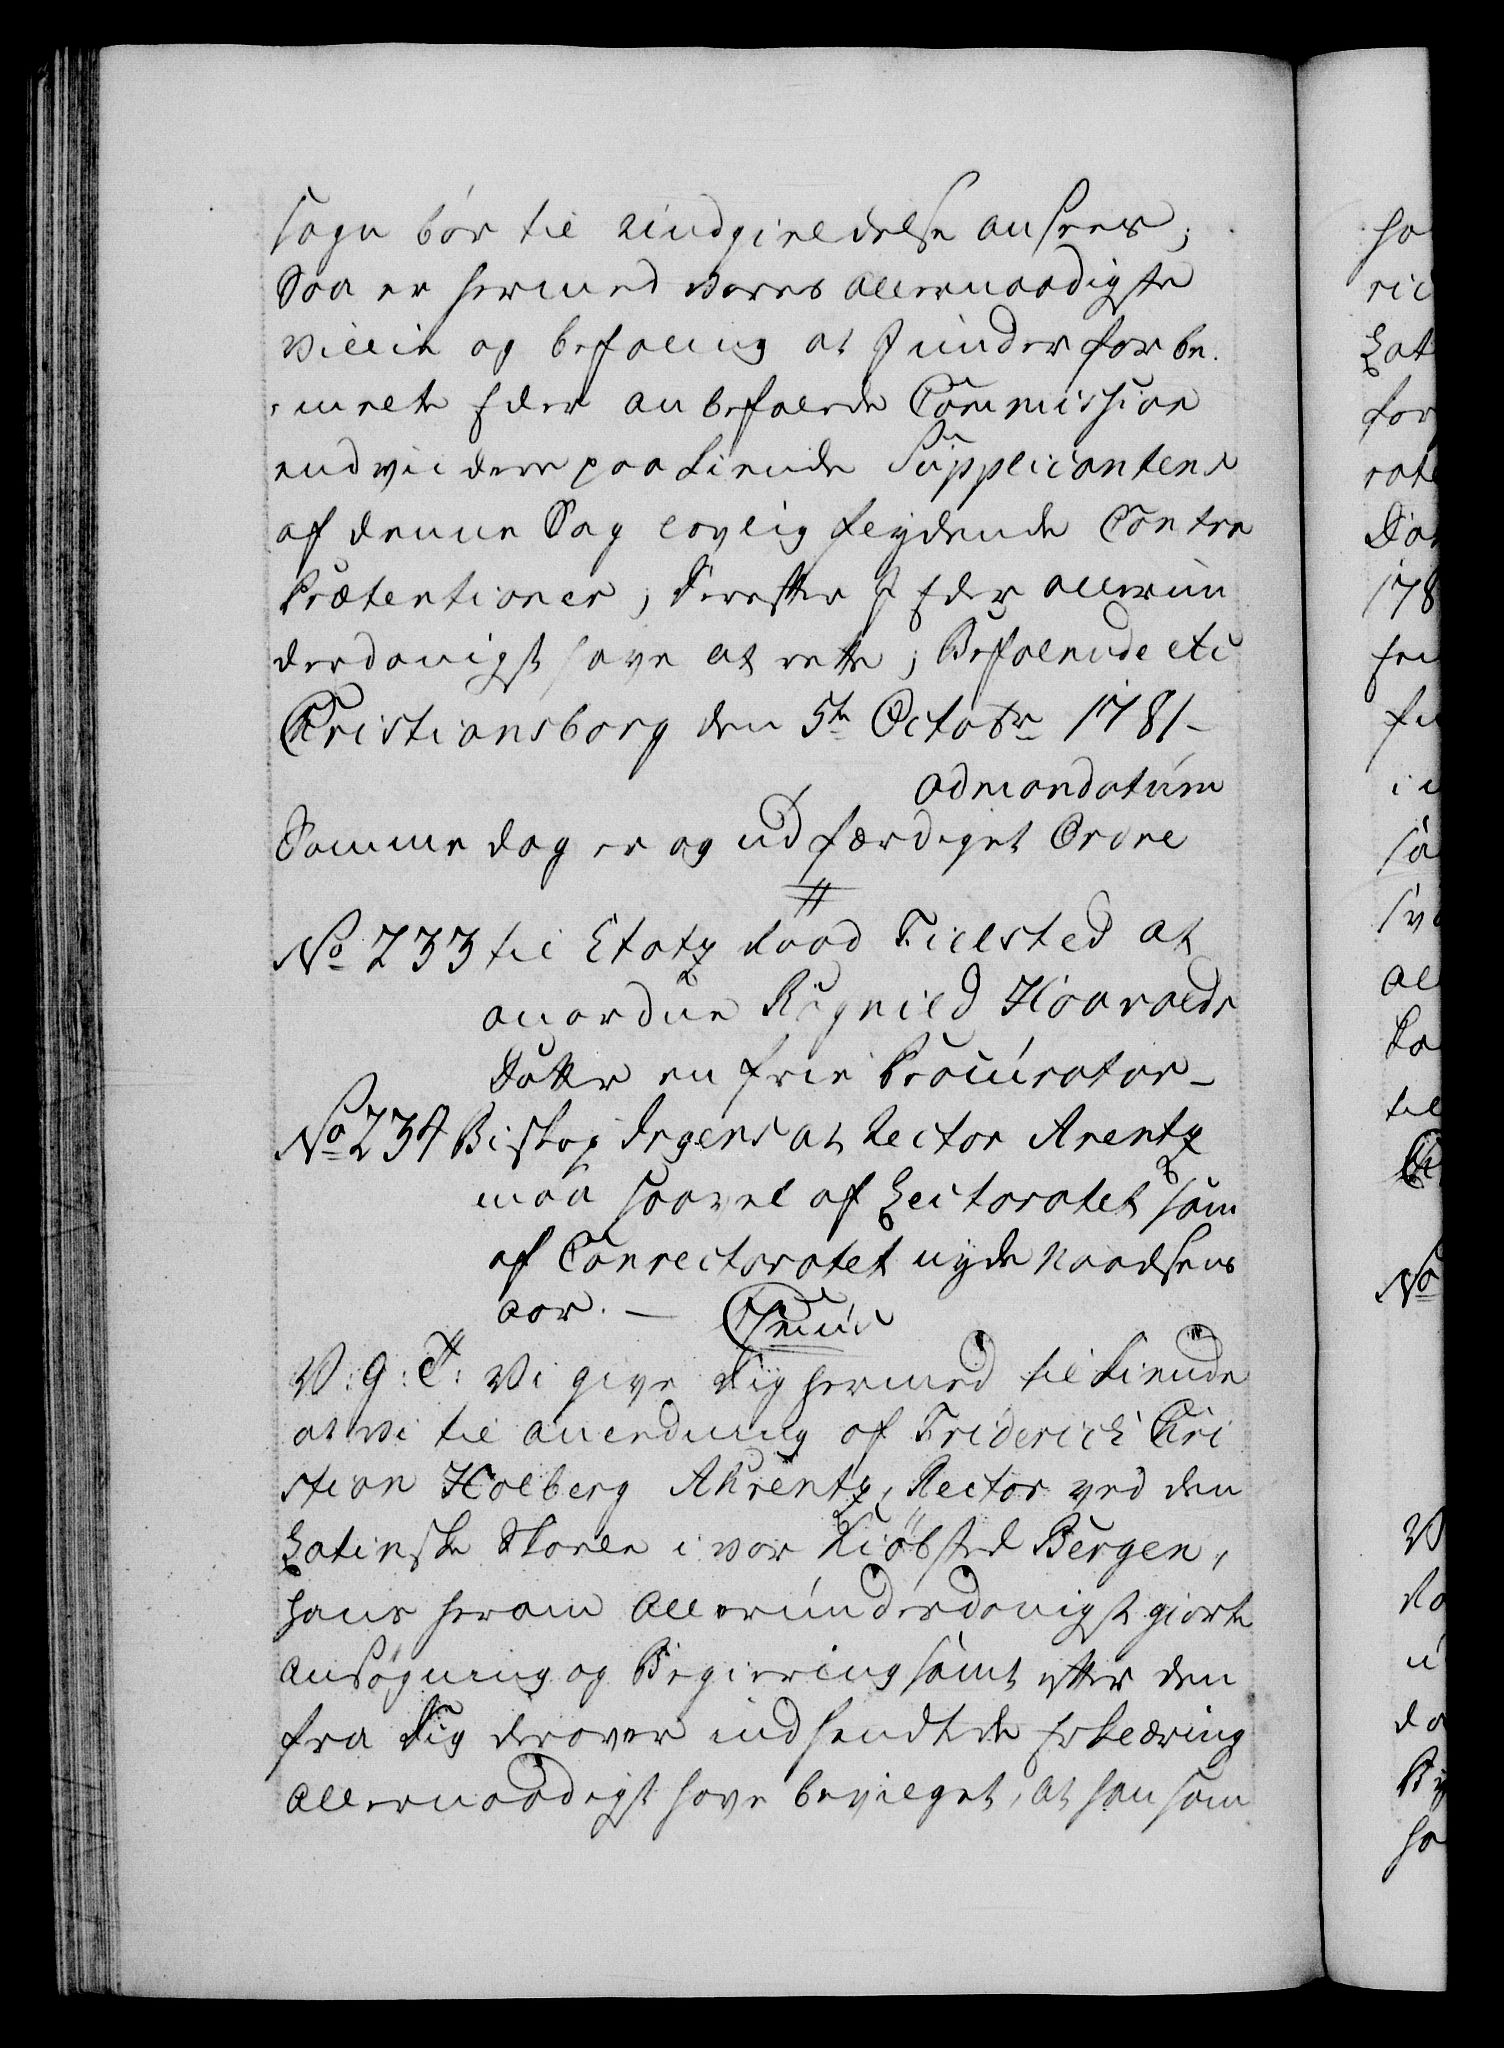 sagn bør til undgieldelse ansees;
Saa er hermed Vores allernaadigste
Villie og befaling at I under forbe-
-melte Eder anbefalede Commission
endvidere paakiende Supplicantens
af denne Sag lovlig fleydende Contra
Prætentioner; Derefter I Eder allerun
derdanigst have at rette; Befalende etc
Christiansborg den 5te Octobr 1781-
ad mandatum
Samme dag er og udfærdiget Ordre
No 233 til Etatz Raad Fielsted at
anordne Rognild Haaralds
Datter en frie Procurator-
No 234 Biskop Irgens at Rector Arentz
maa saavel af Lectoratet som
af Conrectoratet nyde Naadsens
aar. -
V: G: T: Vi give dig hermed tilkiende
at vi til anledning af Friderich Chri
stian Holberg Ahrentz, Rector ved den
Latinske Skole i vor Kiøbsted Bergen,
hans herom allerunderdanigst giorte
Ansøgning og Begiering samt efter den
fra Dig derover indsendte Erklæring
allernaadigst have bevilget, at han som